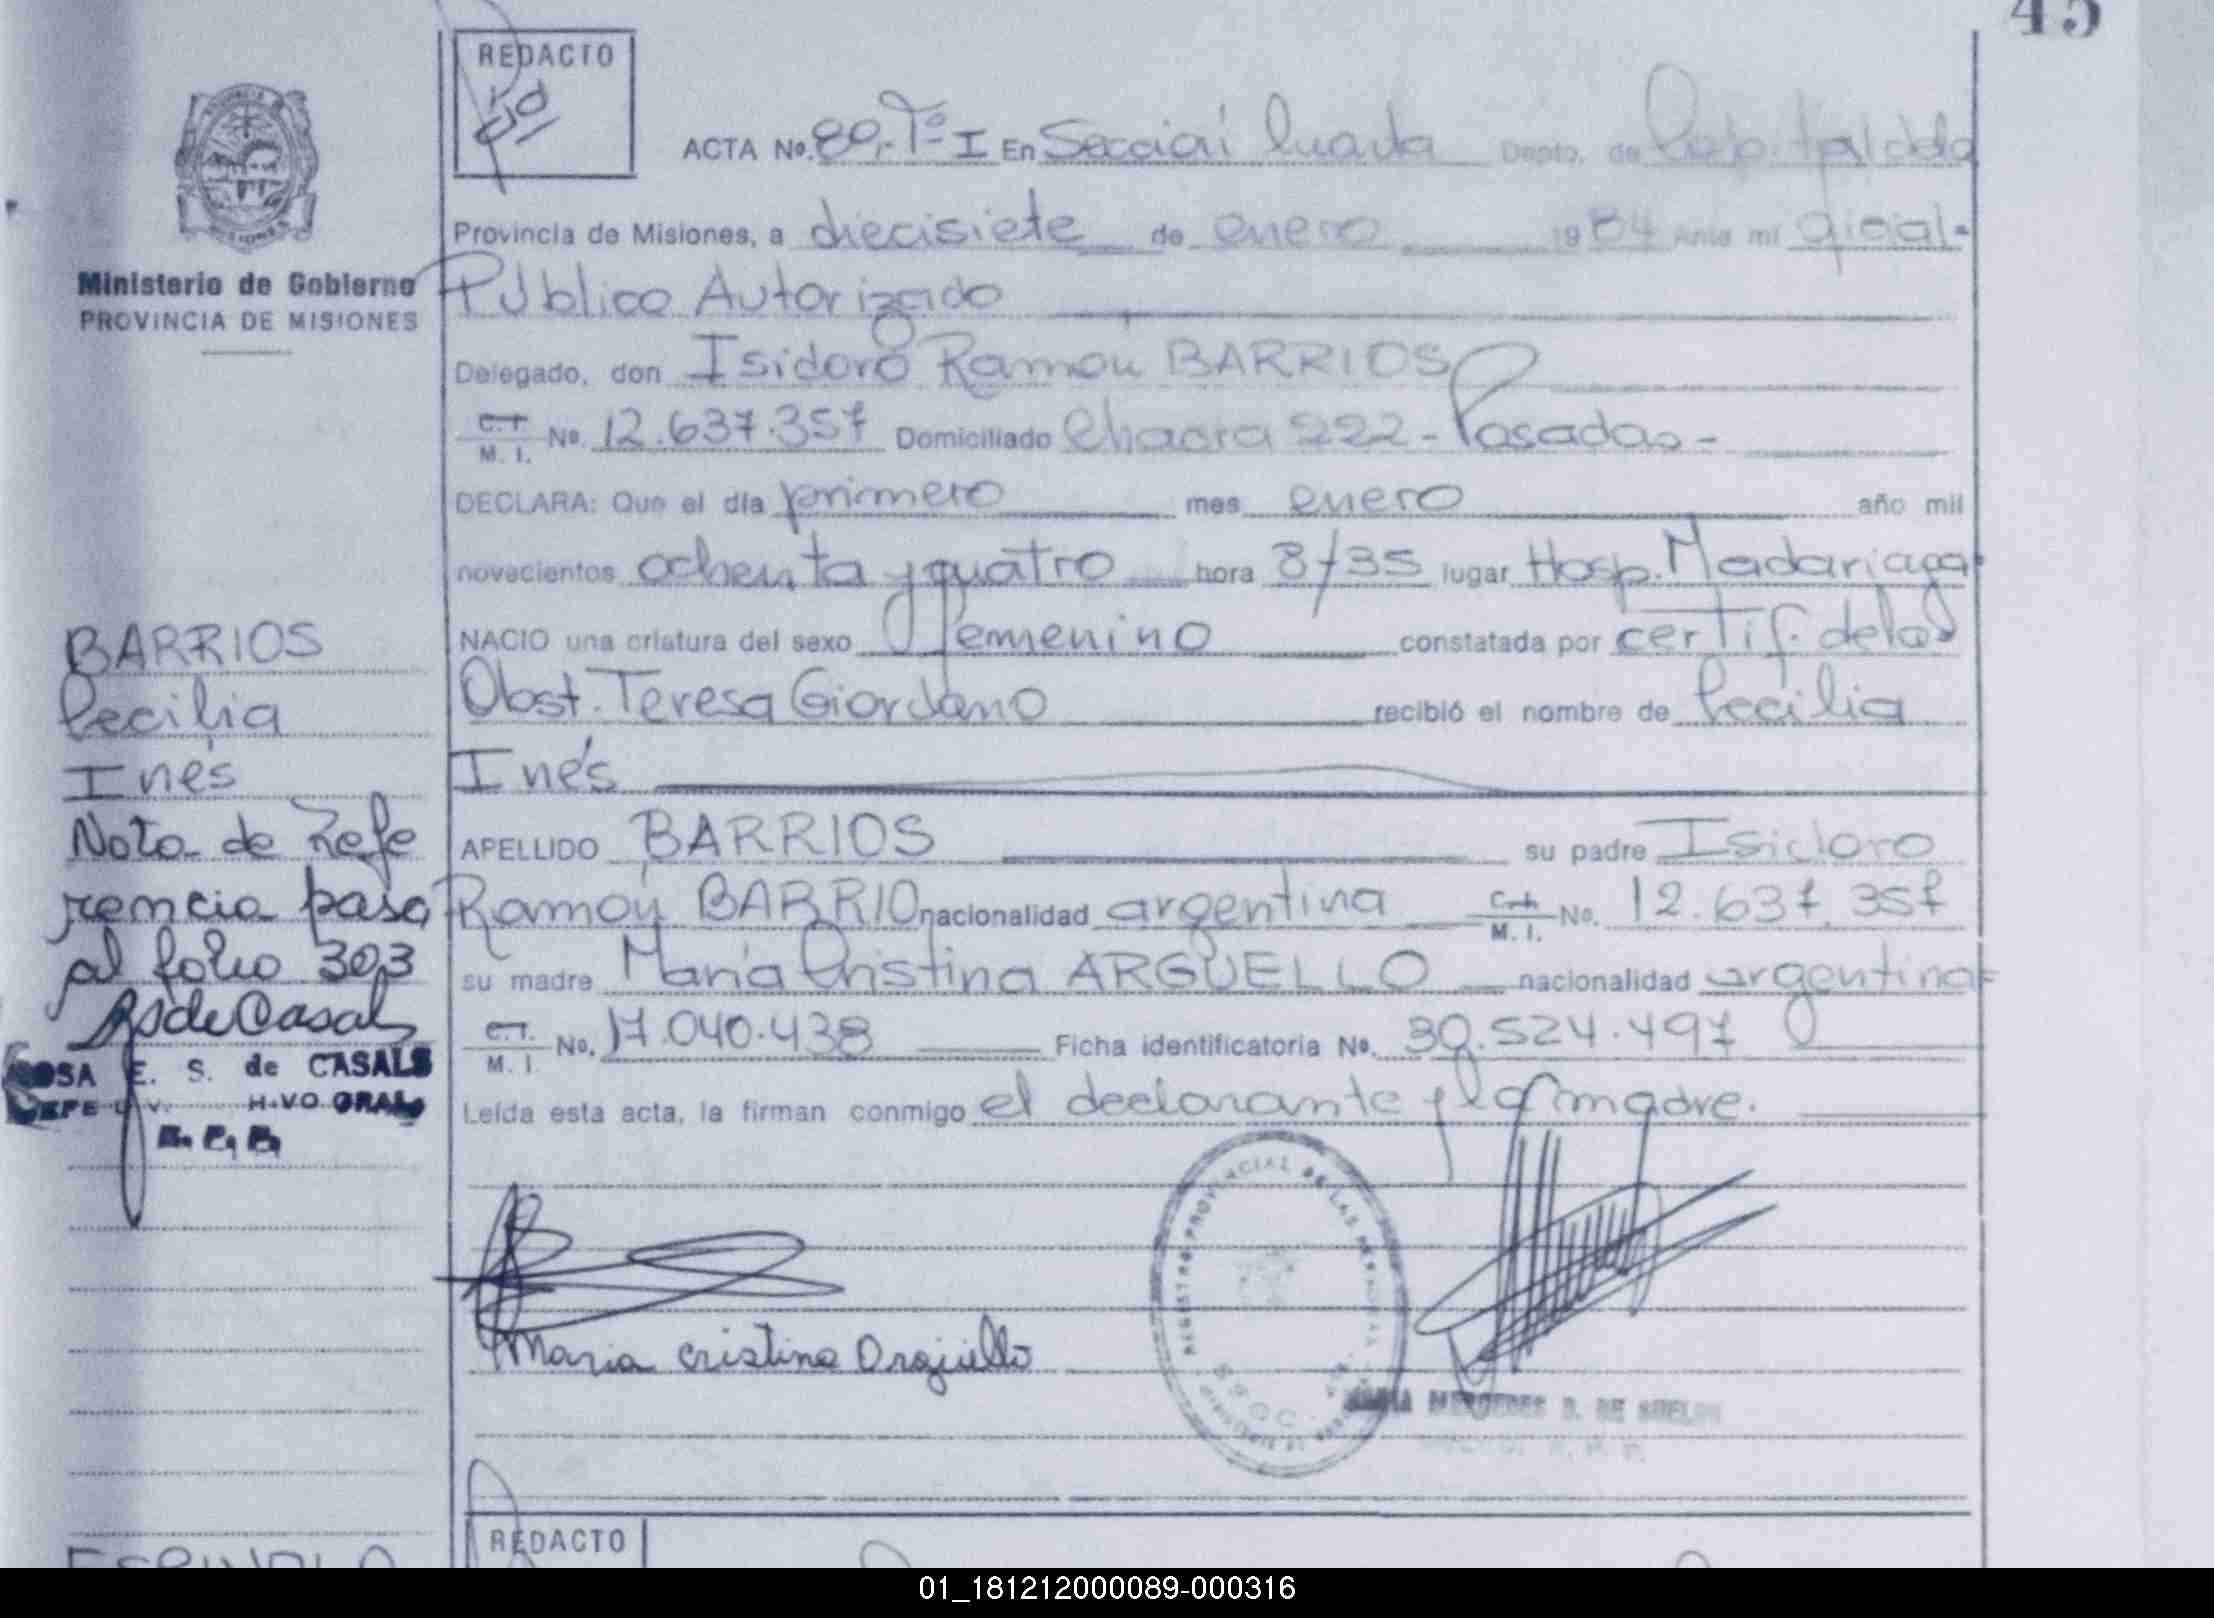 45
REDACTO
ACTA No. 80.- Tº I En Sección Cuarta Depto. de Capital de la
Provincia de Misiones, a diecisiete de enero 1984 Ante mí Oficial
Público Autorizado
Delegado, don Isidoro Ramón BARRIOS
C.I. M. I. No. 12.637.357 Domiciliado Chacra 222 - Posadas -
DECLARA: Que el día primero mes enero año mil
novecientos ochenta y quatro hora 8/35 lugar Hosp. Madariaga
NACIO una criatura del sexo femenino constatada por certif. de la
Obst. Teresa Giordano recibió el nombre de Cecilia
Inés
APELLIDO BARRIOS su padre Isidoro
Ramón BARRIO nacionalidad argentina M. I. No. 12.637.357
su madre María Cristina ARGÜELLO nacionalidad argentina
C.I. M. I. No. 17.040.438 Ficha identificatoria No. 30.524.497
Leída esta acta, la firman conmigo el declarante y la madre.
Maria Cristina Argüello
REGISTRO PROVINCIAL DE LAS PERSONAS
MARIA MERCEDES D. DE
REDACTO
Ministerio de Gobierno
PROVINCIA DE MISIONES
BARRIOS
Cecilia
Inés
Nota de Refe
rencia pasa
al folio 303
RS de Casals
ROSA E. S. de CASALS
JEFE
ESPINDOLA
01_181212000089-000316